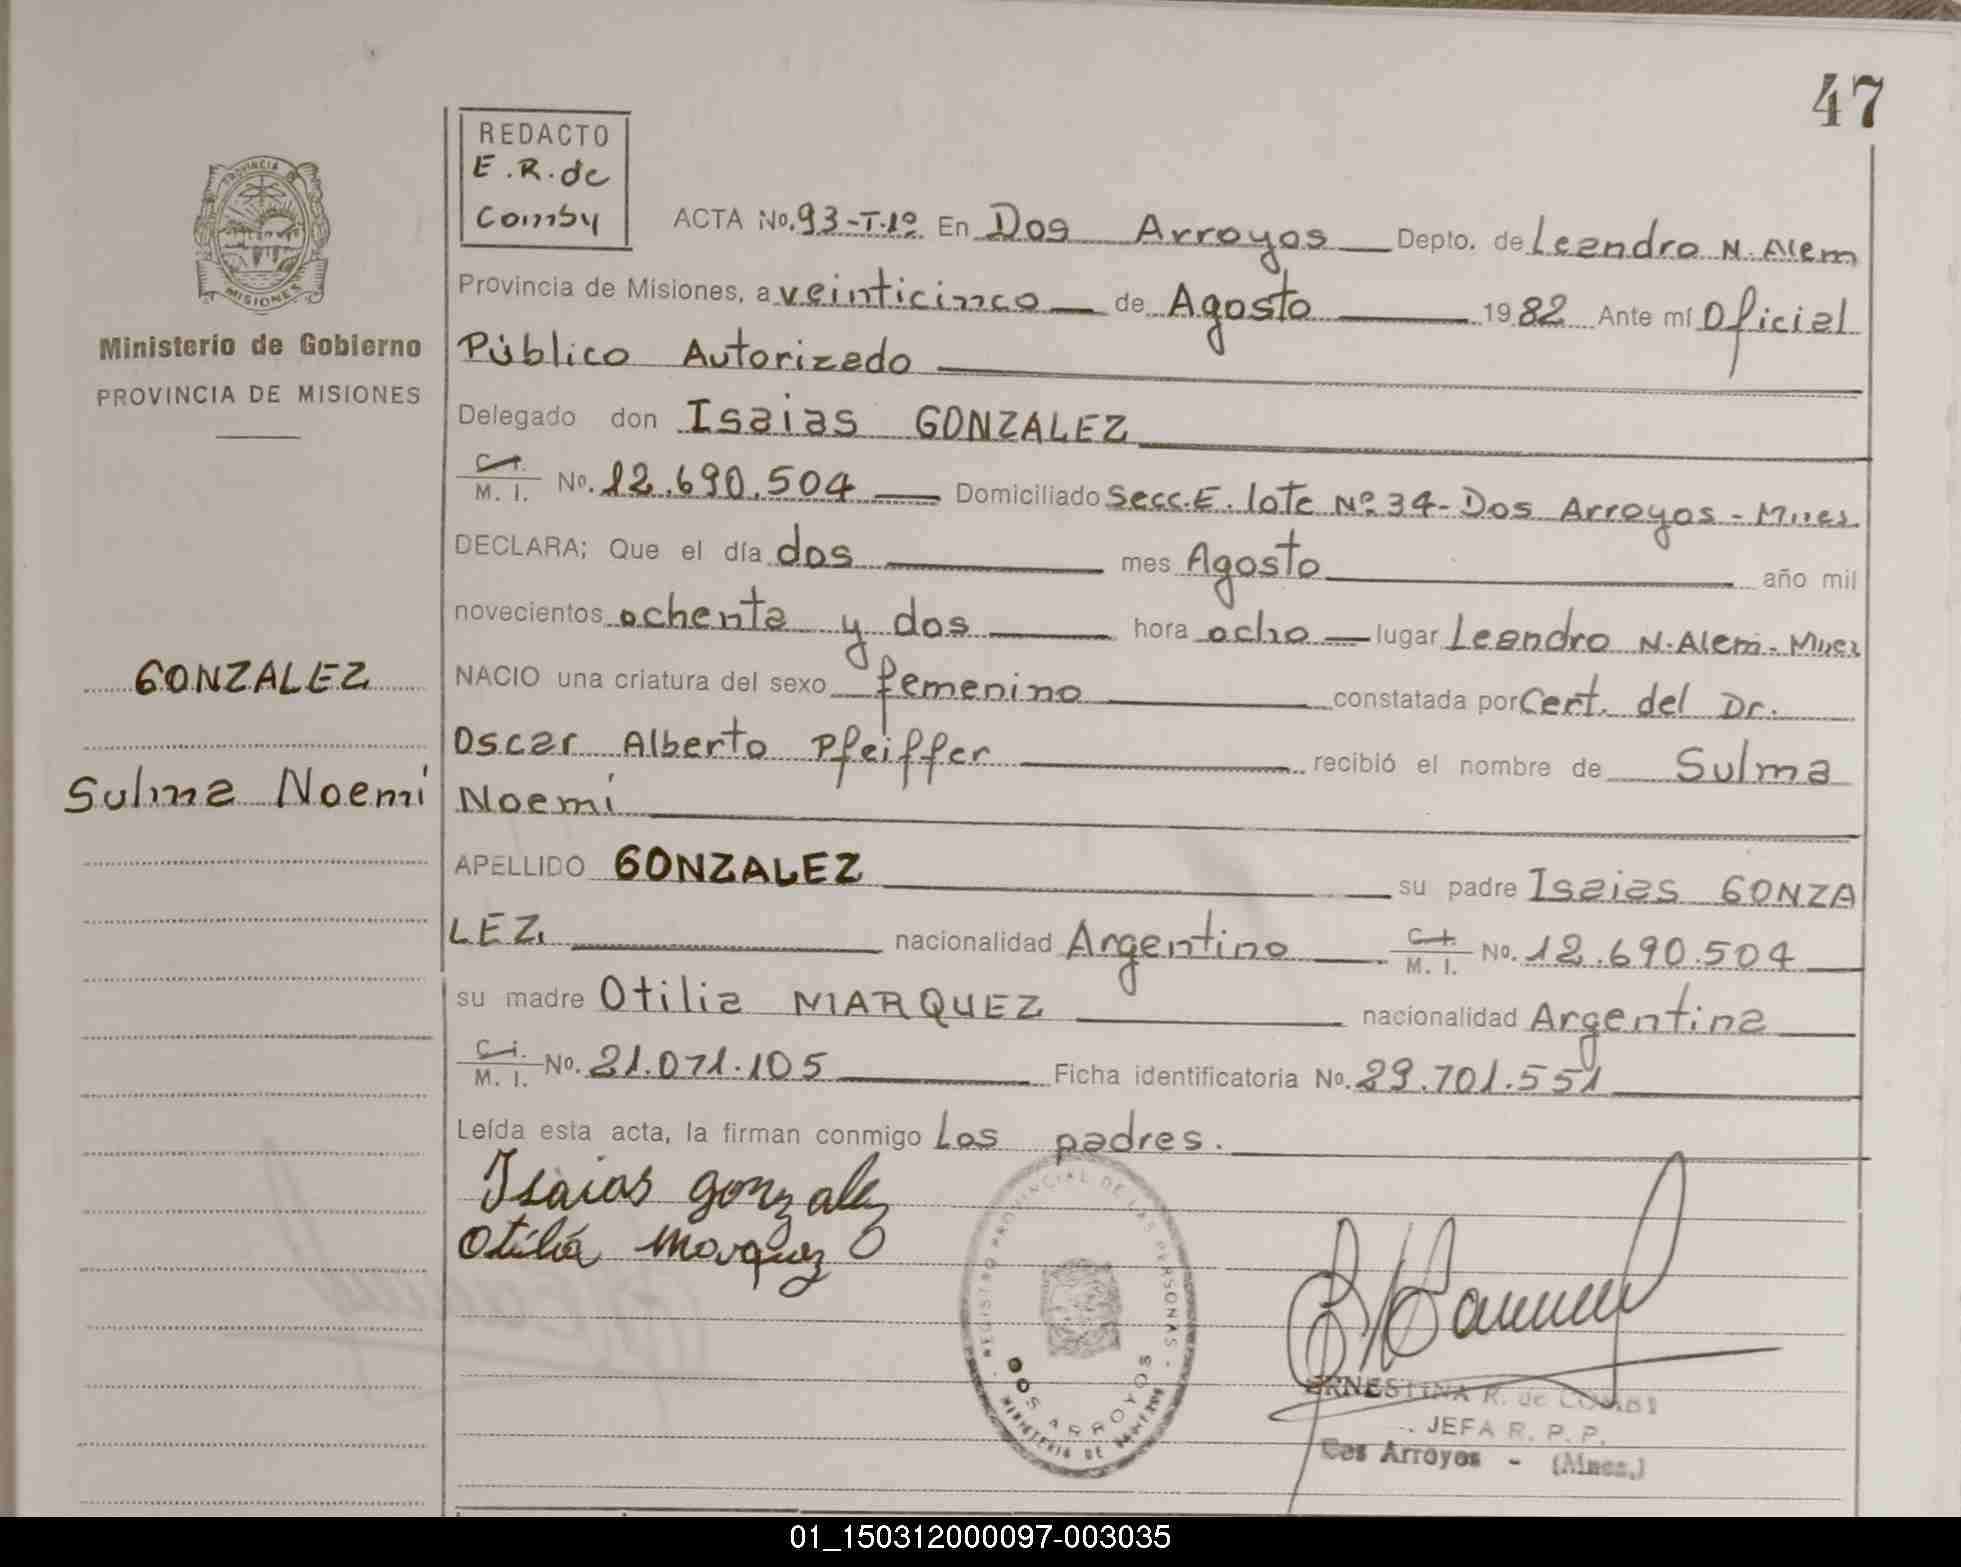 47
REDACTO
E.R.de
Comby
PROVINCIA
MISIONES
Ministerio de Gobierno
PROVINCIA DE MISIONES
GONZALEZ
Sulma Noemí
ACTA No. 93-T.1º En Dos Arroyos Depto. de Leandro N. Alem
Provincia de Misiones, a veinticinco de Agosto 1982 Ante mí Oficial
Público Autorizado
Delegado don Isaias GONZALEZ
C.I.
M. I. No. 12.690.504 Domiciliado Secc.E. lote Nº 34- Dos Arroyos - Mnes
DECLARA; Que el día dos mes Agosto año mil
novecientos ochenta y dos hora ocho lugar Leandro N. Alem - Mnes
NACIO una criatura del sexo femenino constatada por Cert. del Dr.
Oscar Alberto Pfeiffer recibió el nombre de Sulma
Noemí
APELLIDO GONZALEZ su padre Isaias GONZA
LEZ. nacionalidad Argentino C.I. M. I. No. 12.690.504
su madre Otilia MARQUEZ nacionalidad Argentina
C.I.
M. I. No. 21.071.105 Ficha identificatoria No. 29.701.551
Leída esta acta, la firman conmigo Los padres.
Isaias gonzalez
Otilia Marquez
REGISTRO PROVINCIAL DE LAS PERSONAS
DOS ARROYOS
MINISTERIO DE GOBIERNO
ERNESTINA R. de COMBI
JEFA R. P. P.
Dos Arroyos - (Mnes.)
01_150312000097-003035